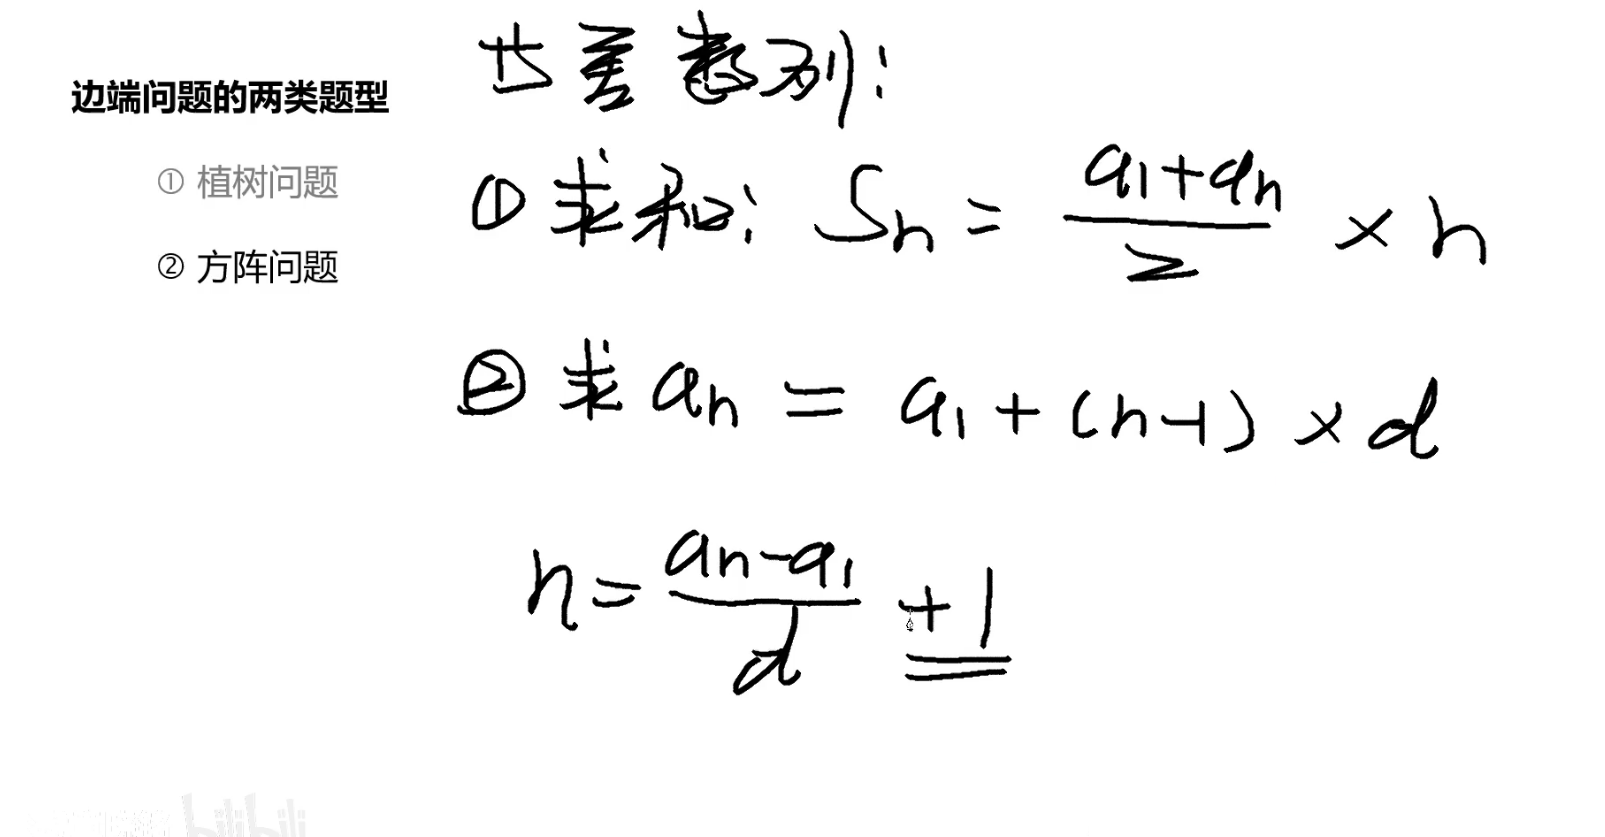 边端问题的两类题型
① 植树问题
② 方阵问题
等差数列:
① 求和: Sn = (a1+an)/2 × n
② 求 an = a1 + (n-1) × d
n = (an-a1)/d + 1
bilibili